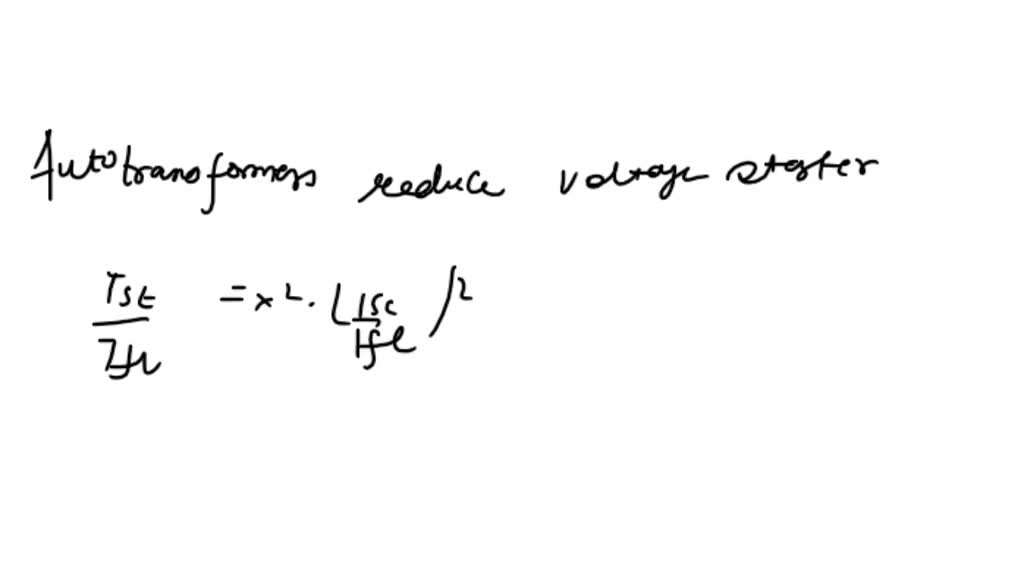 Autotransformers reduce voltage starter
Tst / Tfl = x². (Isc / Ifl)²